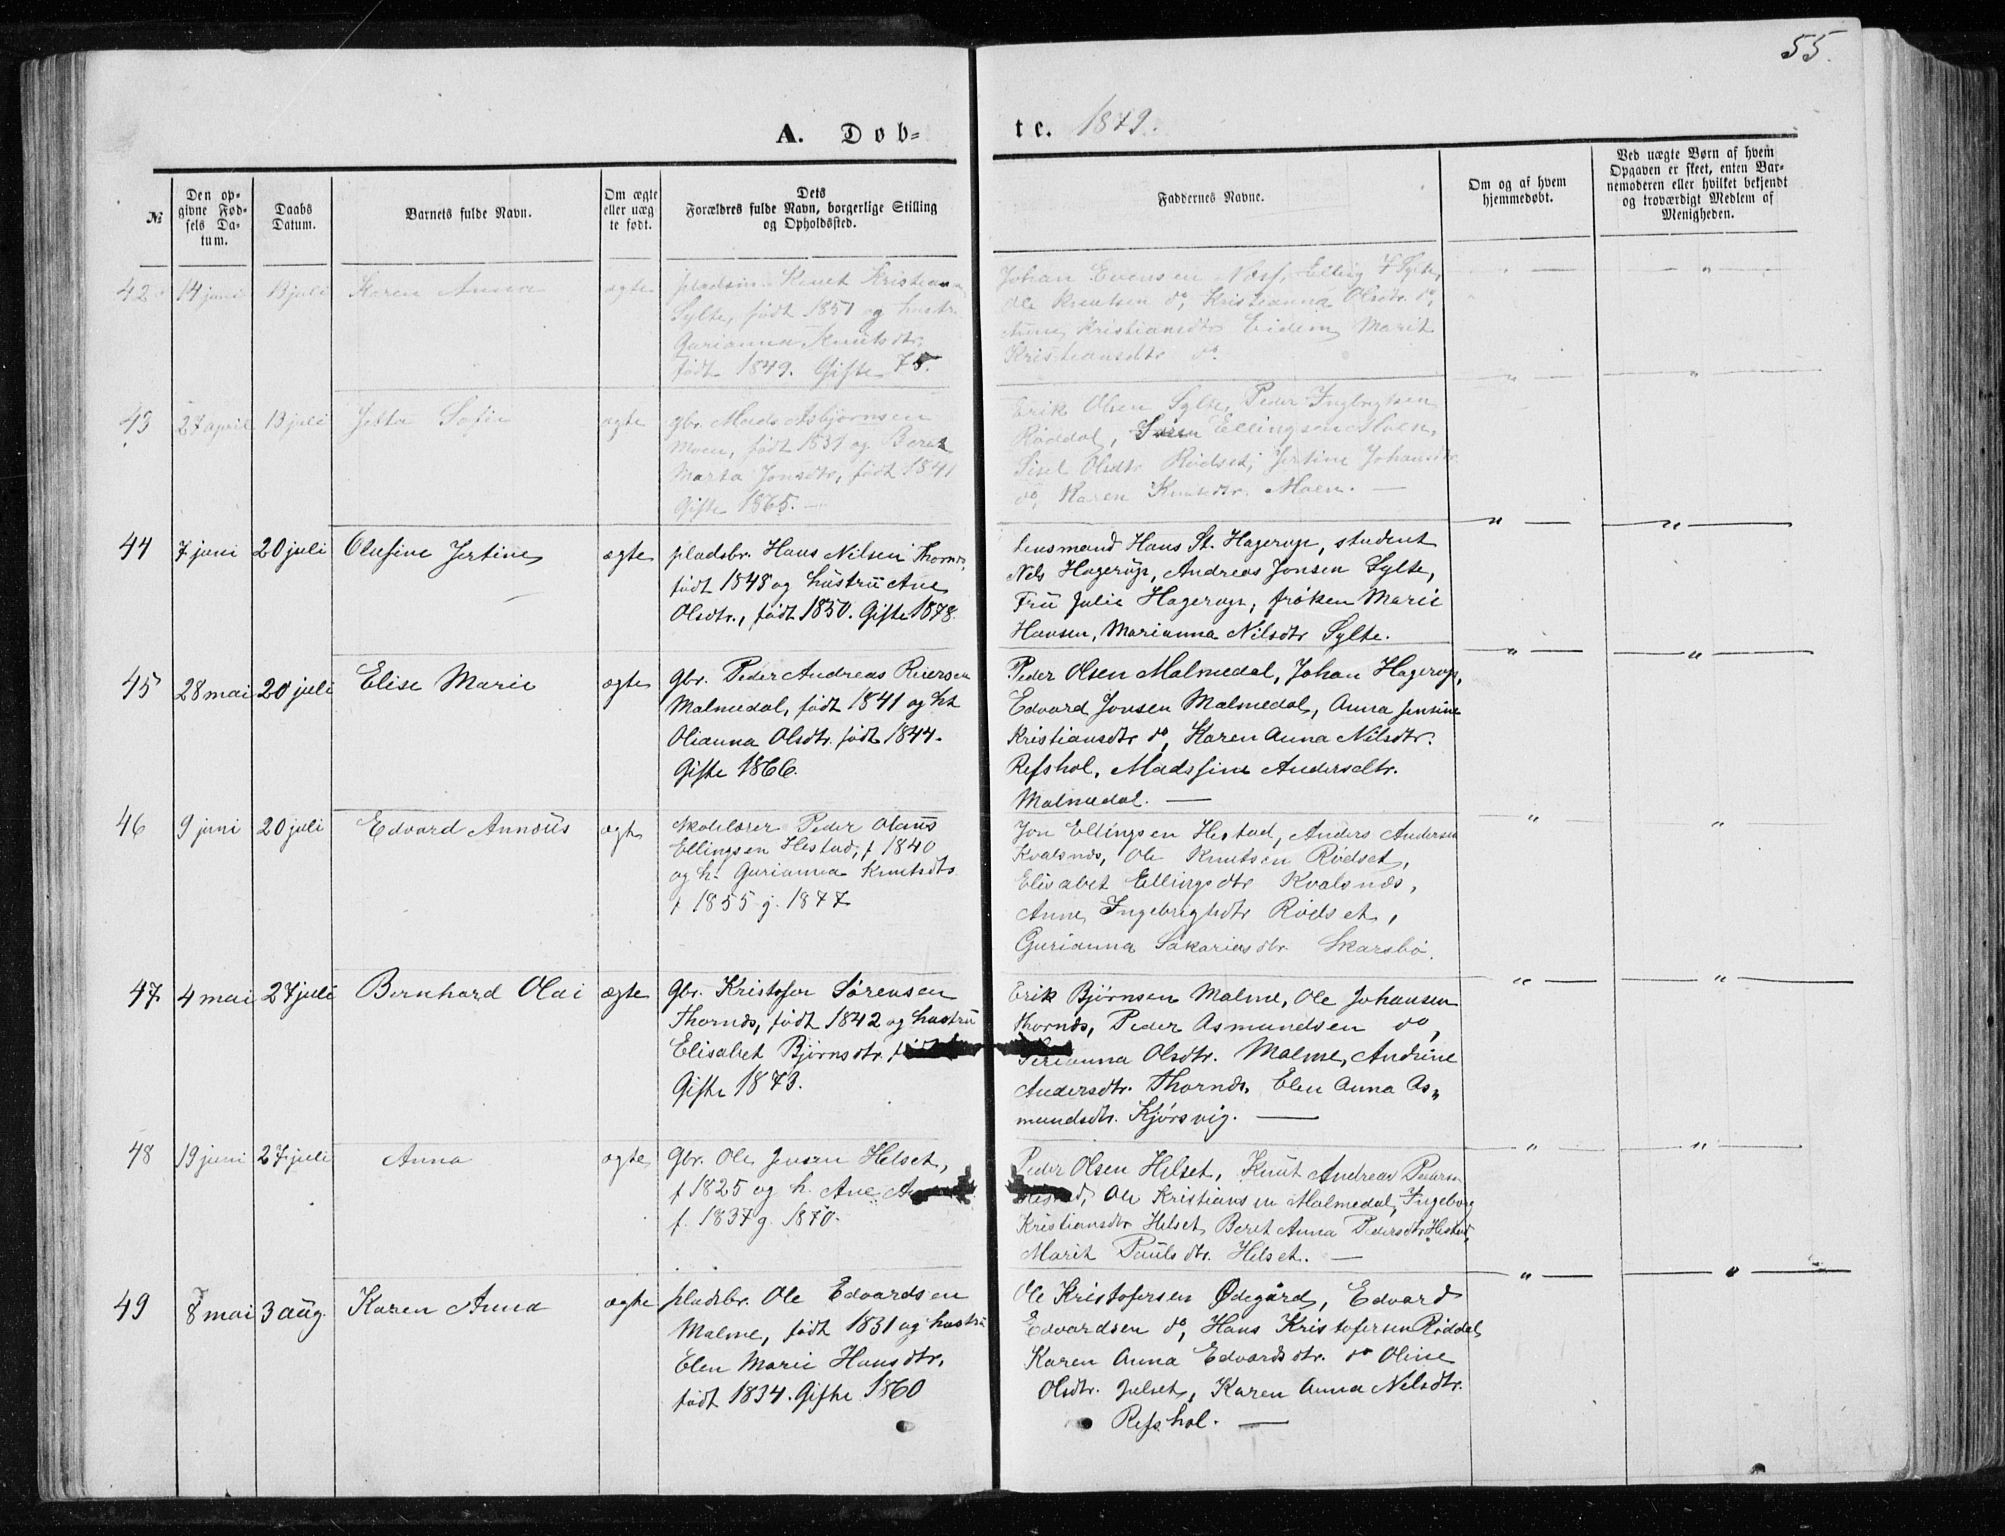 55.
A. Døb-
te. 1879.
No
Den op-
givne Fød-
sels Da-
tum.
Daabs
Datum.
Barnets fulde Navn.
Om ægte
eller uæg
te født.
Dets
Forældres fulde Navn, borgerlige Stilling
og Opholdssted.
Faddernes Navne.
Om og af hvem
hjemmedøbt.
Ved uægte Børn af hvem
Opgaven er skeet, enten Bar-
nemoderen eller hvilket bekjendt
og troværdigt Medlem af
Menigheden.
42 14 juni 13 juli Karen Anna ægte pladsm. Knut Kristian
Sylte, født 1851 og hustr.
Gurianna Knutsdtr,
født 1849. Gifte 75.
Johan Evensen Elling Sylte,
Ole Knutsen do, Kristianna Olsdtr. do,
Anne Kristiansdtr Eidem, Marit
Kristiansdtr do.
43 27 april 13 juli Jetta Sofie ægte gbr. Mads Asbjørnsen
Moen, født 1831 og Beret
Marta Jonsdtr, født 1841
Gifte 1865. —
Erik Olsen Sylte, Peder Ingbrigtsen
Røddal, Ellingsen Moen,
Sisel Olsdtr Rødset, Jertine Johansdtr
do, Karen Knutsdtr. Moen. —
44 7 juni 20 juli Olufine Jertine ægte pladsbr. Hans Nilsen Thornæs,
født 1848 og hustru Ane
Olsdtr., født 1850. Gifte 1878.
Lensmand Hans St. Hagerup, student
Nels Hagerup, Andreas Jonsen Sylte,
Fru Julie Hagerup, frøken Marie
Hansen, Marianna Nilsdtr Sylte.
45 28 mai 20 juli Elise Marie ægte gbr. Peder Andreas Reiersen
Malmedal, født 1841 og h.
Olianna Olsdtr. født 1844.
Gifte 1866.
Peder Olsen Malmedal, Johan Hagerup,
Edvard Jonsen Malmedal, Anna Jensine
Kristiansdtr do, Karen Anna Nilsdtr.
Refshol, Madssine Andersdtr.
Malmedal. —
46 9 juni 20 juli Edvard Annæus ægte Skolelærer Peder Olaus
Ellingsen Hestad, f 1840
og h. Gurianna Knutsdtr
f 1855 g. 1877
Jon Ellingsen Hestad, Anders Andersen
Kvalsnæs, Ole Knutsen Rødset,
Elisabet Ellingsdtr Kvalsnæs,
Anne Ingebrigtsdtr Rødset,
Gurianna Sakariasdtr. Skarsbø.
47 4 mai 27 juli Bernhard Olai ægte gbr. Kristofer Sørensen
Thornæs, født 1842 og hustru
Elisabet Bjørnsdtr.
Gifte 1873.
Erik Bjørnsen Malme, Ole Johansen
Thornæs, Peder Asmundsen do,
Olsdtr. Malme, Andrine
Andersdtr. Thornæs, Elen Anna As-
mundsdtr. Kjørsvig. —
48 19 juni 27 juli Anna ægte gbr. Ole Jensen Helset,
f 1825 og h. Ane
f. 1837 g. 1870.
Peder Olsen Helset, Knut Andreas Peders
Ole Kristiansen Malmedal, Ingeborg
Kristiansdtr Helset, Beret Anna Pedersdtr Hestad,
Marit Paulsdtr. Helset. —
49 8 mai 3 aug. Karen Anna ægte pladsbr. Ole Edvardsen
Malme, født 1831 og hustru
Elen Marie Hansdtr,
født 1834. Gifte 1860
Ole Kristofersen Ødegård, Edvard
Edvardsen do, Hans Kristofersen Røddal
Karen Anna Edvardsdtr. do Oline
Olsdtr. Julset, Karen Anna Nilsdtr.
Refshol. —